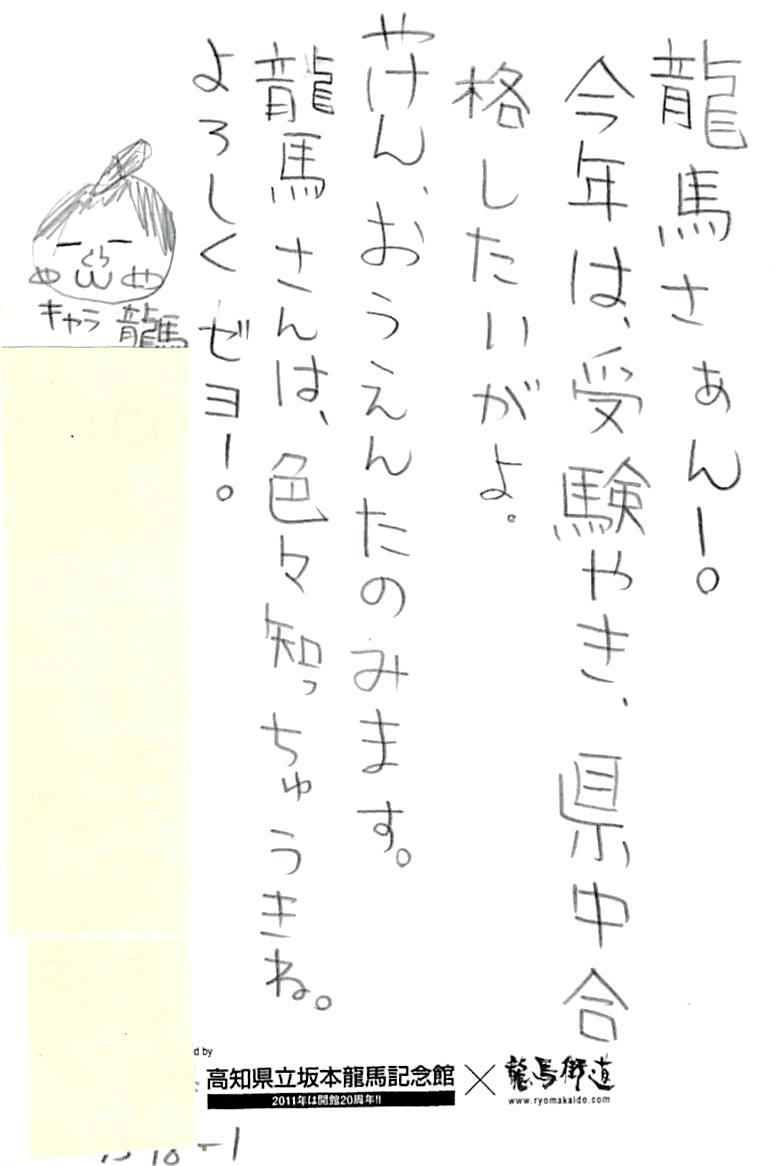 龍馬さぁんー。
今年は、受験やき、県中合
格したいがよ。
やけん、おうえんたのみます。
龍馬さんは、色々知っちゅうきね。
よろしくゼヨー。
キャラ龍馬
d by
高知県立坂本龍馬記念館×龍馬街道
2011年は開館20周年!!
www.ryomakaido.com